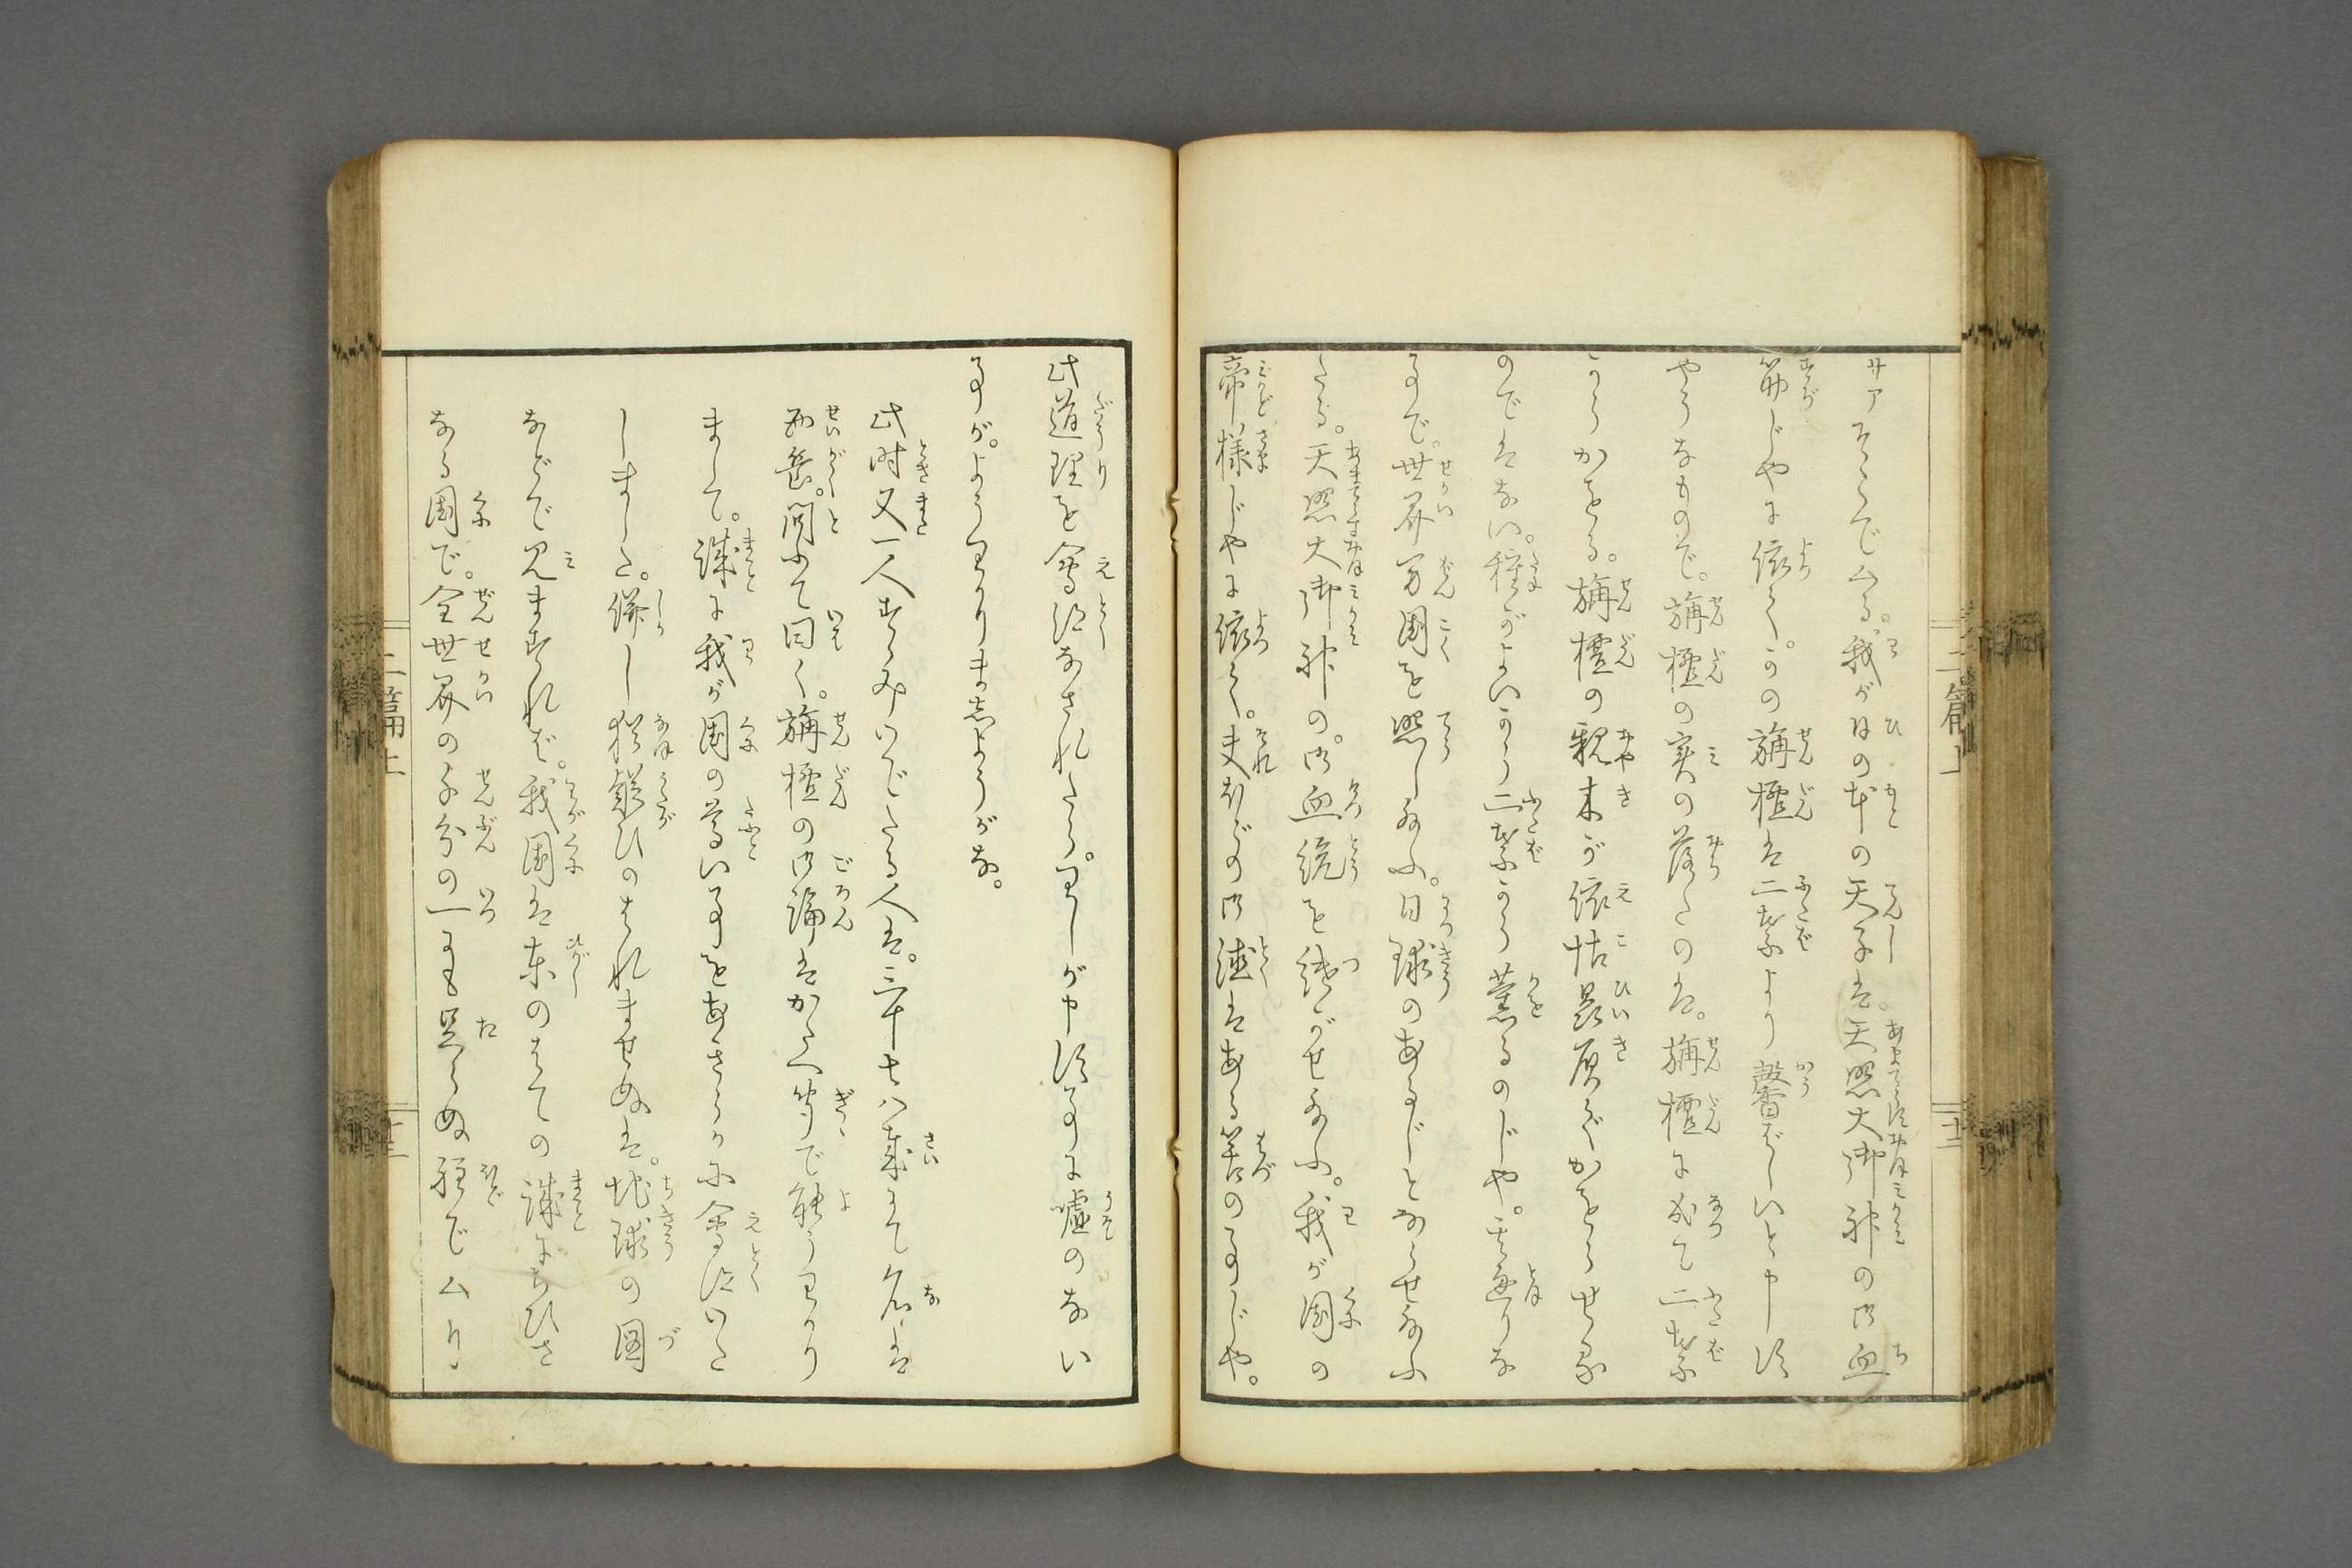 サアそこでムる。我が日の本の天子は。天照大御神の御血
筋じやに依て。かの栴檀は二葉より馨ばしいと申す
やうなもので。栴檀の実の落たのは。栴檀に成て二葉
からかをる。栴檀の親木が依怙贔屓でかをらせる
のではない。種がよいから二葉から薫るのじや。其通りな
事で。世界万国を照し給ふ。日球のあるじとならせ給ふ
たる。天照大御神の。御血統を継がせ給ふ。我が国の
帝様じやに依て。夫ほどの御徳はある筈の事じや。
此道理を会得なされたら。わしが申す事に嘘のない
事が。ようわかりま志ようがな。
此時又一人すゝみいでたる人は。三十七八歳にて名は
西岳。問ふて曰く。栴檀の御論はかたへ ぎゝで能うわかり
まして。誠に我が国の尊い事をあきらかに会得いた
しました。併し猶疑ひのはれませぬは。地球の図
などで見ますれば。我国は東のはての誠にちひさ
なる国で。全世界の千分の一にも足らぬ程でムり
二篇上
十二
二篇上
十三